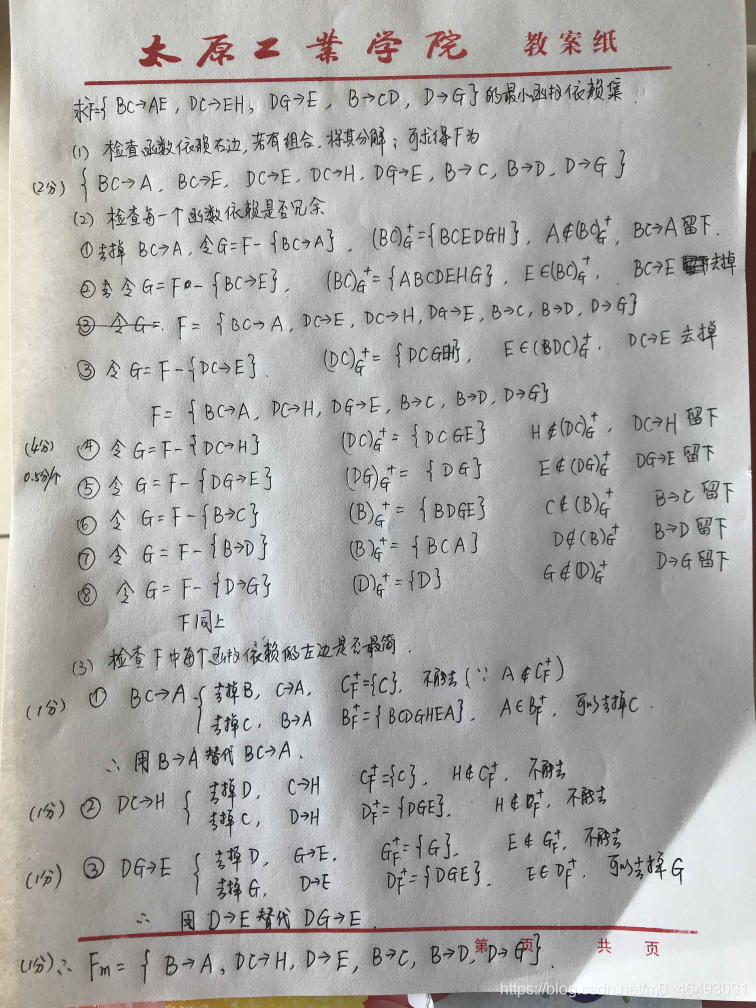 太原工業学院 教案纸
求F={ BC→AE, DC→EH, DG→E, B→CD, D→G}的最小函数依赖集.
(1) 检查函数依赖右边,若有组合,将其分解;可求得F为
(2分) { BC→A, BC→E, DC→E, DC→H, DG→E, B→C, B→D, D→G }
(2) 检查每一个函数依赖是否冗余
① 去掉 BC→A, 令G=F-{BC→A}, (BC)G+={BCEDGH}, A∉(BC)G+, BC→A 留下.
② 去 令G=F-{BC→E}, (BC)G+={ABCDEHG}, E∈(BC)G+, BC→E 去掉
③ 令G= F= {BC→A, DC→E, DC→H, DG→E, B→C, B→D, D→G}
③ 令G=F-{DC→E}. (DC)G+= {DCGEH}, E∈(BDC)G+, DC→E 去掉
F= {BC→A, DC→H, DG→E, B→C, B→D, D→G}
(4分) ④ 令G=F-{DC→H} (DC)G+= {DCGE} H∉(DC)G+, DC→H 留下
0.5分/个 ⑤ 令G=F-{DG→E} (DG)G+= {DG} E∉(DG)G+ DG→E 留下
⑥ 令G=F-{B→C} (B)G+= {BDGE} C∉(B)G+ B→C 留下
⑦ 令G=F-{B→D} (B)G+={BCA} D∉(B)G+ B→D 留下
⑧ 令G=F-{D→G} (D)G+={D} G∉(D)G+ D→G 留下
F同上
(3) 检查F中每个函数依赖的左边是否最简.
(1分) ① BC→A { 去掉B, C→A, CF+={C}, 不能去(∵ A∉CF+)
去掉C, B→A BF+={BCDGHEA}, A∈BF+, 可以去掉C.
∴ 用B→A替代BC→A.
(1分) ② DC→H { 去掉D, C→H CF+={C}, H∉CF+, 不能去
去掉C, D→H DF+={DGE}, H∉DF+, 不能去
(1分) ③ DG→E { 去掉D, G→E, GF+={G}, E∉GF+, 不能去
去掉G, D→E DF+={DGE}, E∈DF+, 可以去掉G
∴ 用D→E替代DG→E.
第 页 共 页
(1分) ∴ Fm= { B→A, DC→H, D→E, B→C, B→D, D→G}.
https://blog.csdn.net/m0_46493091